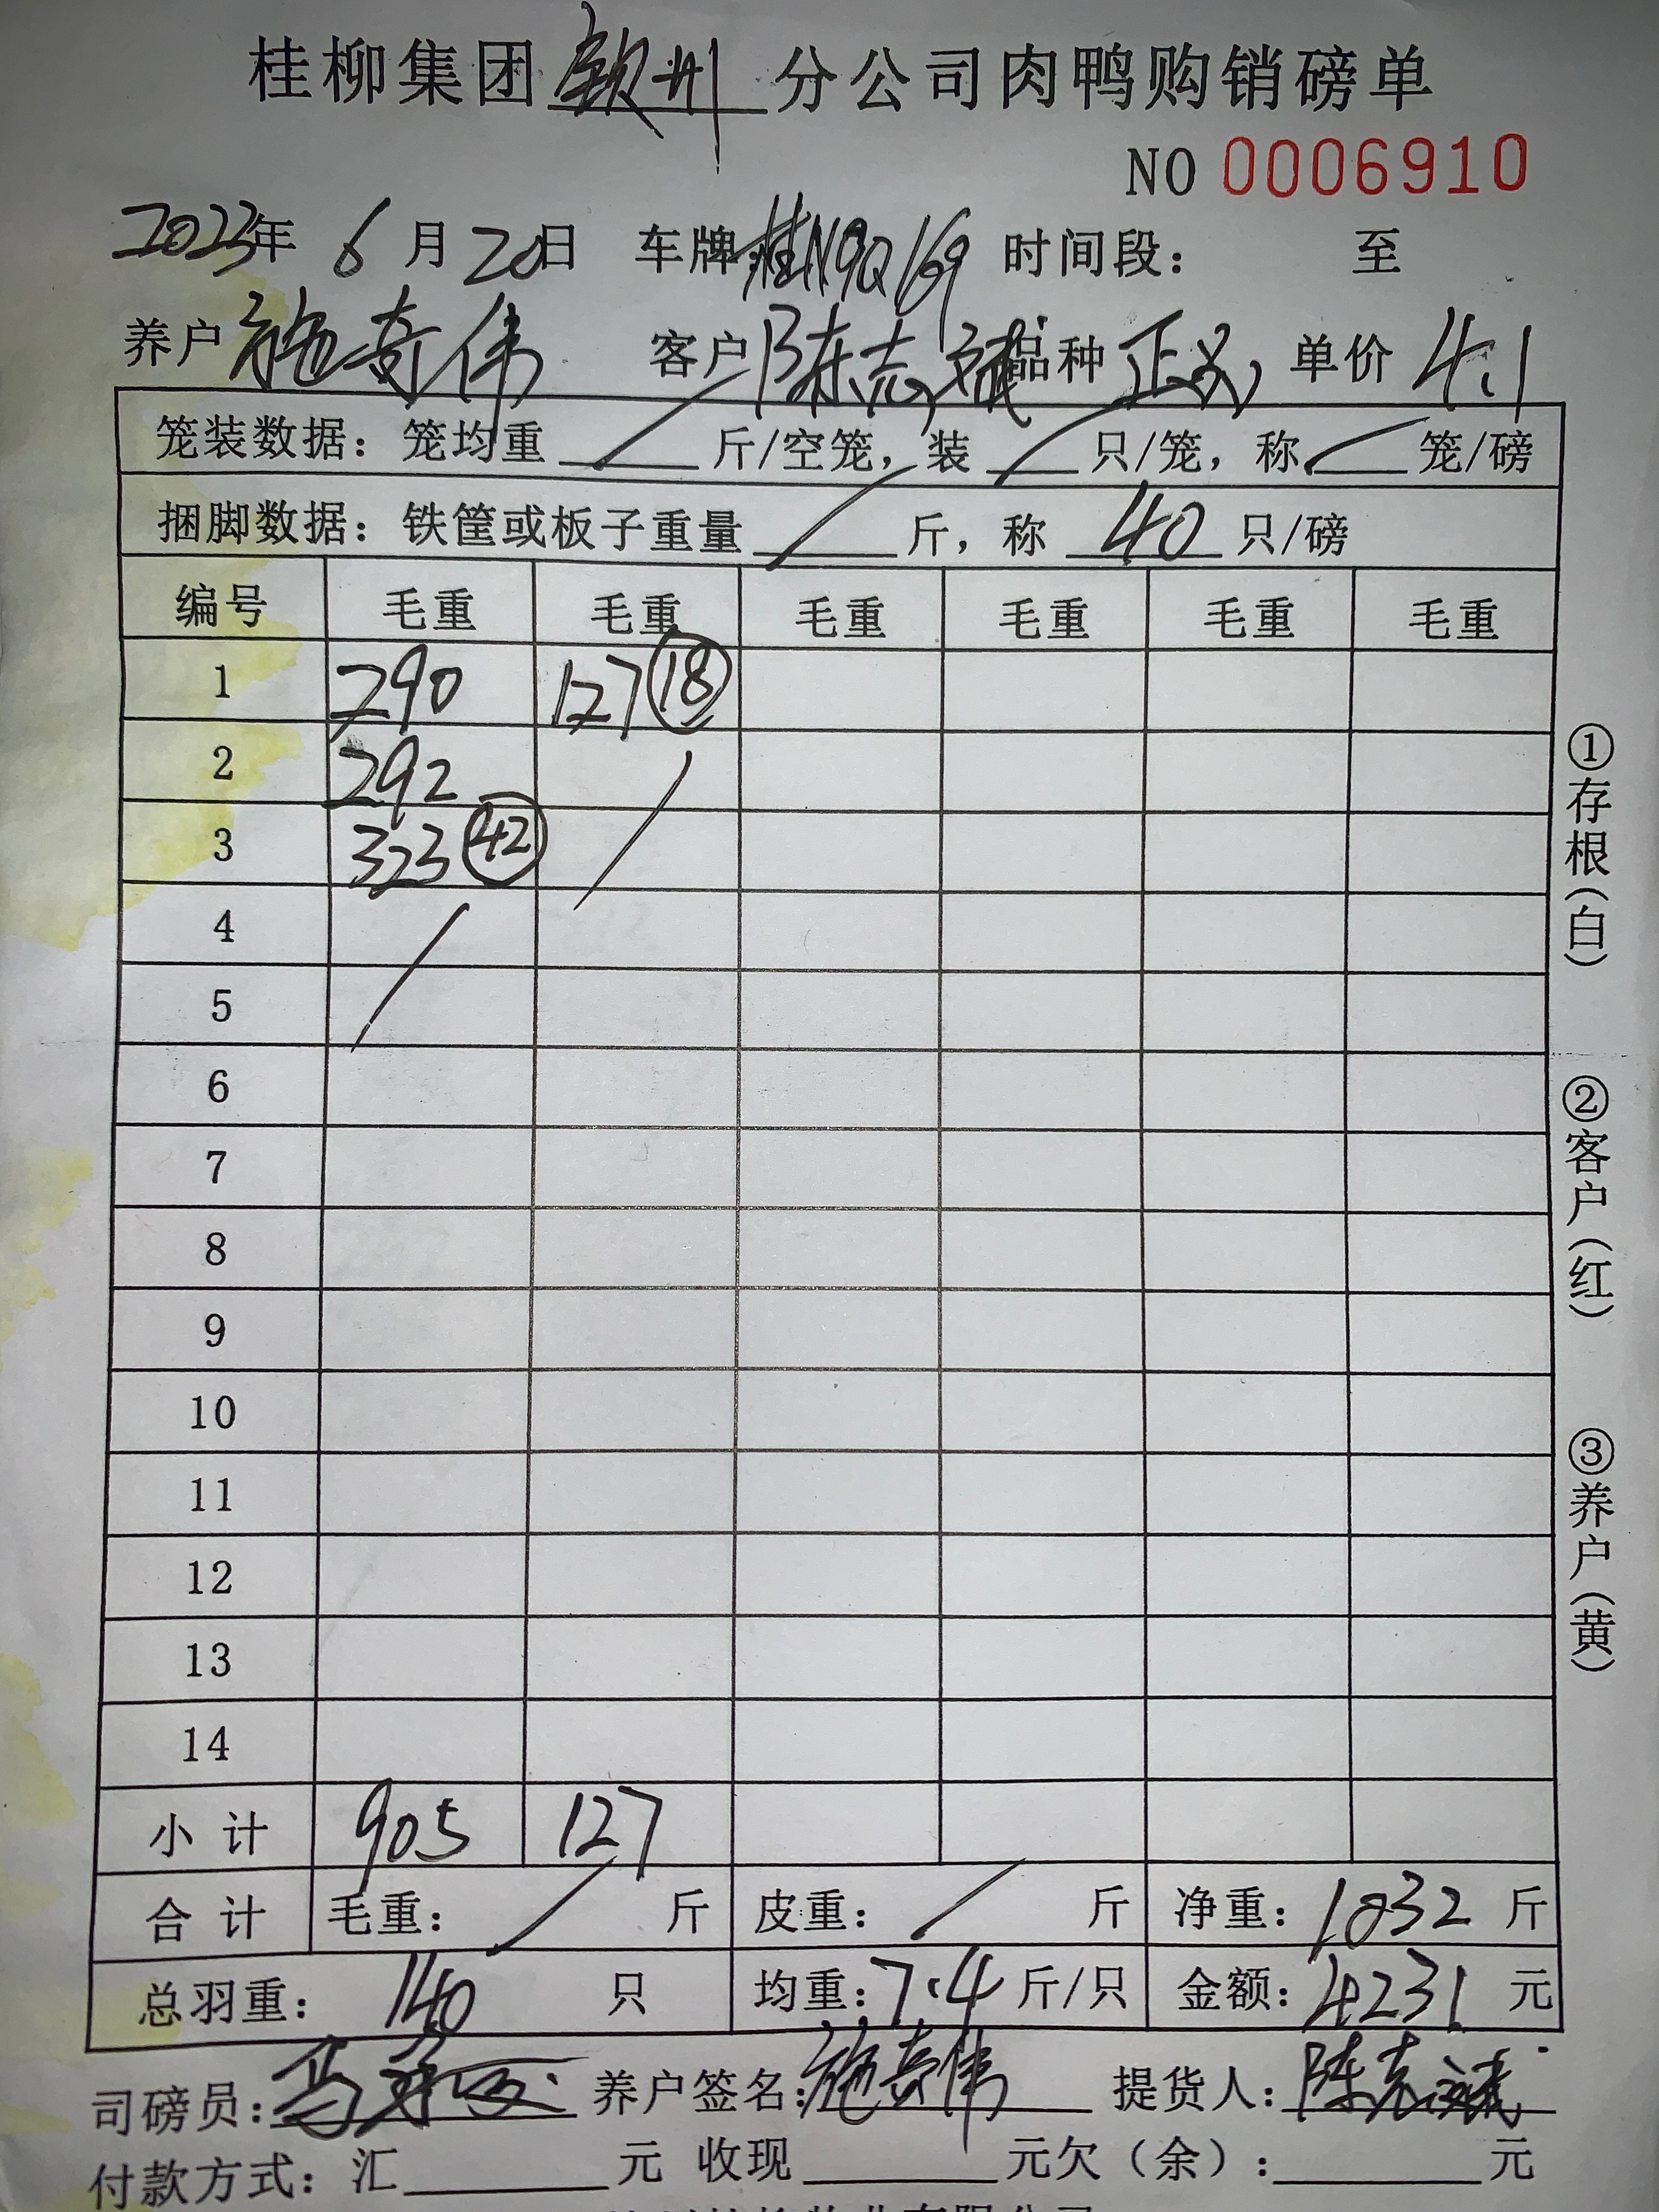 桂柳集团钦州分公司肉鸭购销磅单
NO 0006910
2023年 6月20日 车牌桂N9Q169 时间段: 至
养户 施奇伟 客户 陈志斌 品种 正义 单价 4.1
笼装数据: 笼均重 / 斤/空笼, 装 / 只/笼, 称 / 笼/磅
捆脚数据: 铁筐或板子重量 / 斤, 称 40 只/磅
编号 毛重 毛重 毛重 毛重 毛重 毛重
1 290 127 ⑱
2 292 /
3 323 ㊷
4 /
5
6
7
8
9
10
11
12
13
14
小计 905 127
合计 毛重: / 斤 皮重: / 斤 净重: 1032 斤
总羽重: 140 只 均重: 7.4 斤/只 金额: 4231 元
司磅员: 养户签名: 施奇伟 提货人: 陈志斌
付款方式: 汇 元 收现 元欠(余): 元
①存根(白)
②客户(红)
③养户(黄)